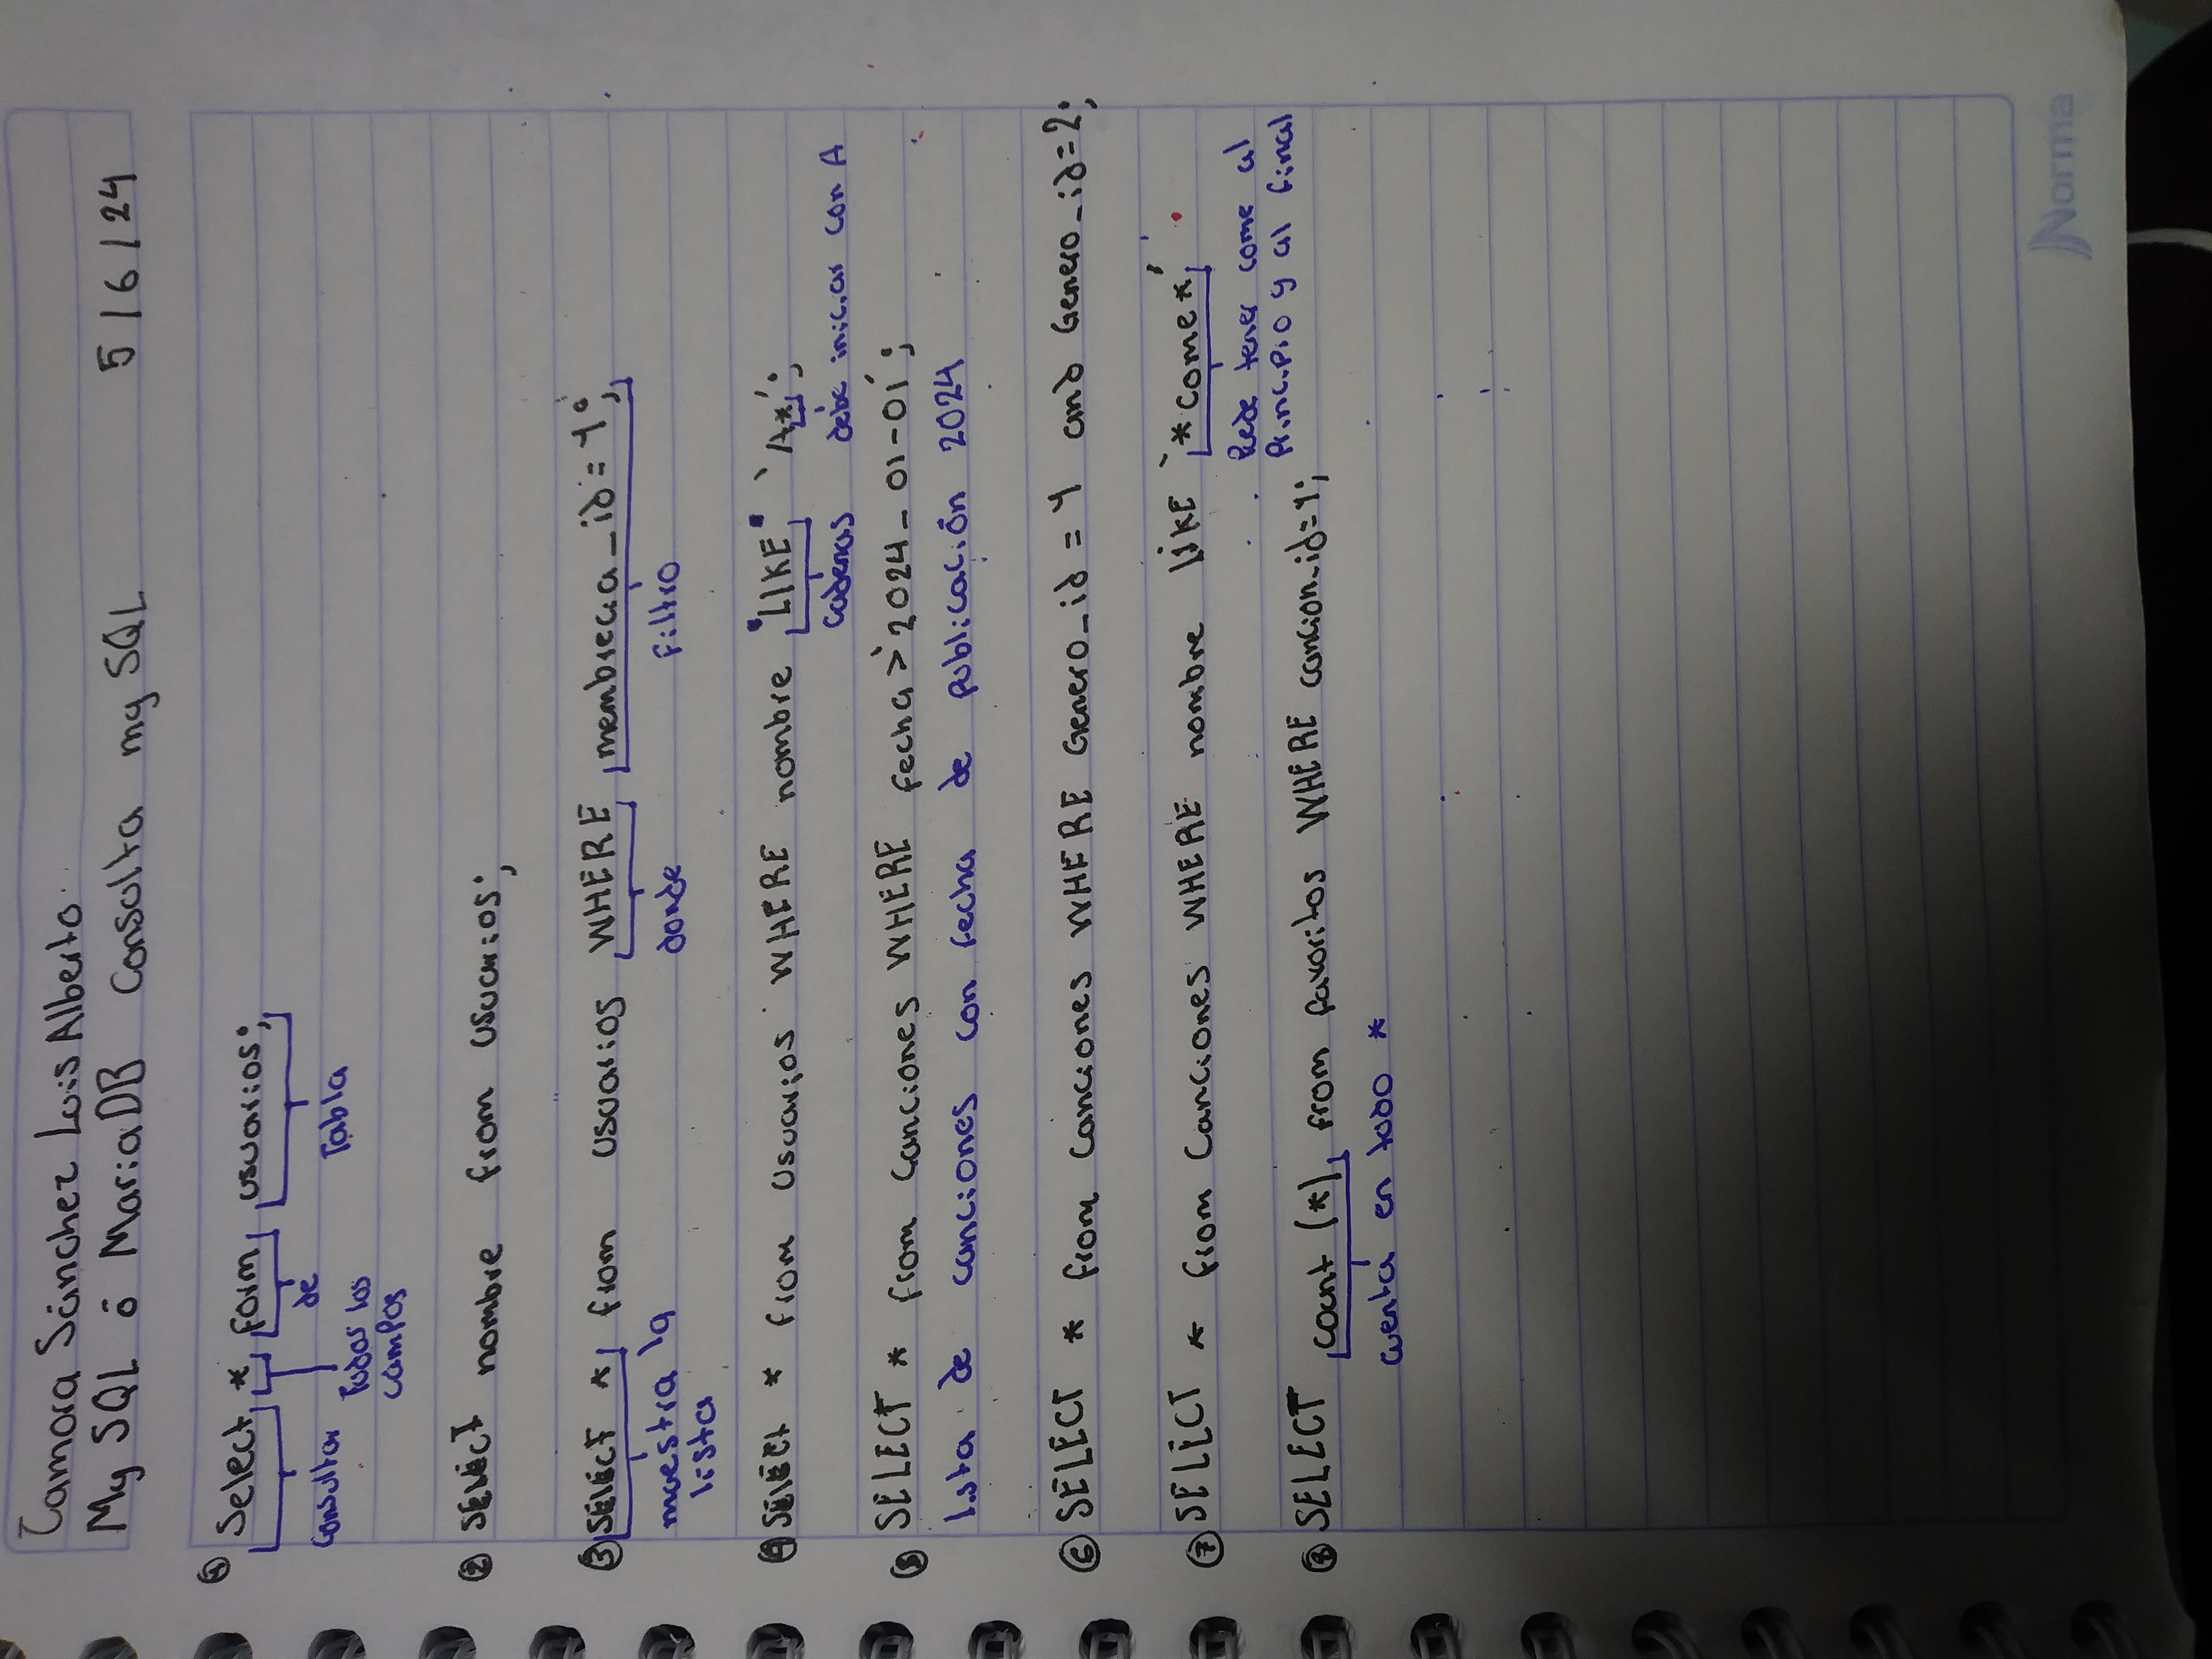 Zamora Sánchez Luis Alberto.
My SQL ó MariaDB Consulta my SQL 5/6/24
① Select * form usuarios;
Consultar Todos los campos de Tabla
② SELECT nombre from usuarios;
③ SELECT * from usuarios WHERE membrecia_id = 1;
muestra la donde Filtro
lista
④ SELECT * from usuarios WHERE nombre "LIKE" 'A*';
Cadenas debe iniciar con A
⑤ SELECT * from canciones WHERE fecha > '2024-01-01';
lista de canciones con fecha de publicación 2024
⑥ SELECT * from canciones WHERE Genero_id = 1 and Genero_id=2;
⑦ SELECT * from Canciones WHERE nombre LIKE '*come*'
Puede tener come al
Principio y al final
⑧ SELECT count (*) from favoritos WHERE cancion_id=1;
cuenta en todo *
Norma